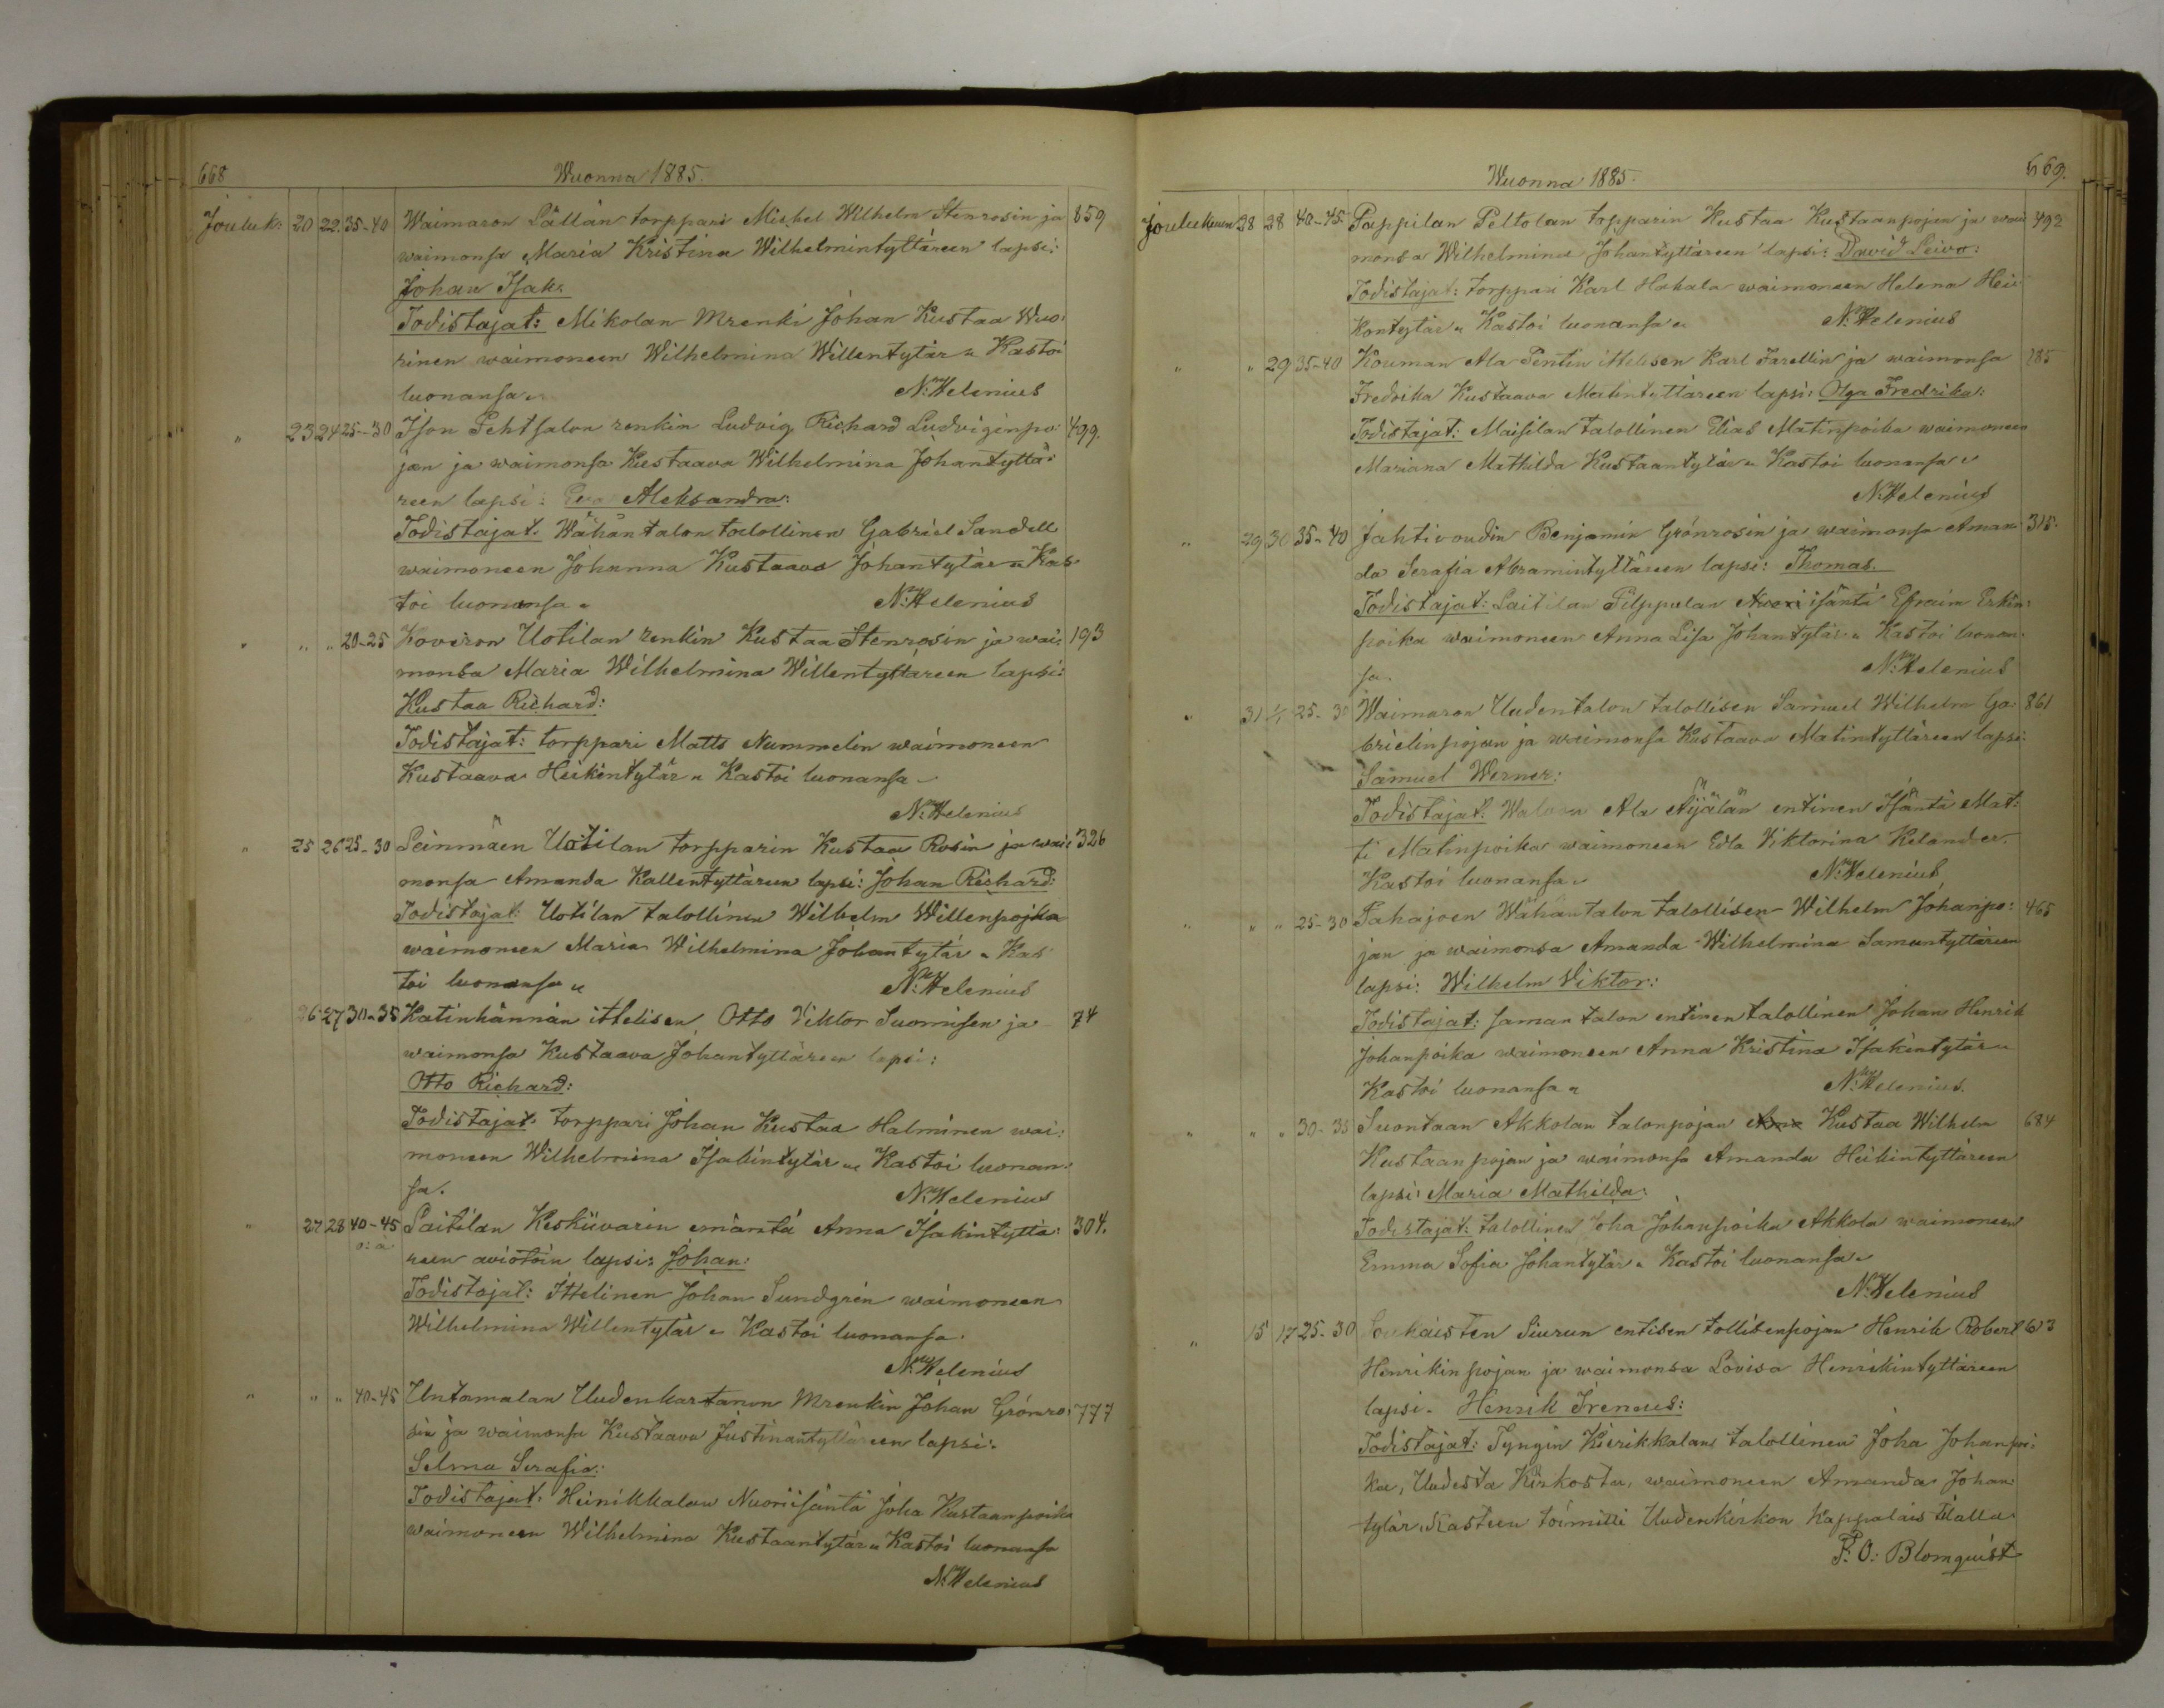 668
Wuonna 1885.
Jouluk: 20 22. 35-40 Waimaron Lällän torppari Mishel Wilhelm Stenrosin ja 859
waimonsa Maria Kristina Wilhelmintyttäreen lapsi:
Johan Isak.
Todistajat: Mikolan Mrenki Johan Kustaa Wuo:
rinen waimoneen Wilhelmina Willentytär „ Kastoi
luonansa „ N: Helenius
„ 23 24 25-30 Ison Pehtsalon renkin Ludvig Richard Ludviginpo: 499.
jan ja waimonsa Kustaava Wilhelmina Johantyttä:
reen lapsi: Eva Aleksandra:
Todistajat: Wähäntalon talollinen Gabriel Sandell
waimoneen Johanna Kustaava Johantytär „ Kas:
toi luonansa „ N: Helenius
„ „ „ 20-25 Koveron Uotilan renkin Kustaa Stenrosin ja wai: 193
monsa Maria Wilhelmina Willentyttäreen lapsi:
Kustaa Richard:
Todistajat: torppari Matts Nummelin waimoneen
Kustaava Heikintytär „ Kastoi luonansa „
N: Helenius
„ 25 26 25-30 Leinmäen Uotilan torpparin Kustaa Rosin ja wai: 326
monsa Amanda Kallentyttäreen lapsi: Johan Richard:
Todistajat: Uotilan talollinen Wilhelm Willenpojka
waimoneen Maria Wilhelmina Johantytär „ Kas
toi luonansa „ N: Helenius
26 27 30-35 Katinhännän ittelisen Otto Viktor Suomisen ja 74
waimonsa Kustaava Johantyttäreen lapsi:
Otto Richard:
Todistajat: torppari Johan Kustaa Halminen wai:
moneen Wilhelmina Isakintytär „ Kastoi luonan:
sa. N: Helenius
„ 27 28 40-45 Laitilan Keskiivarin emäntä Anna Isakintyttä: 304.
o: ä
reen aviotoin lapsi: Johan:
Todistajat: Ittelinen Johan Sundgrén waimoneen
Wilhelmina Willentytär „ Kastoi luonansa.
N: Helenius
„ „ „ 40-45 Untamalan Uudenkartanon Mrenkin Johan Grönro: 777
sin ja waimonsa Kustaava Justinantyttäreen lapsi:
Selma Serafia:
Todistajat: Heinikkalan Nuoriisäntä Joha Kustaanpoika
waimoneen Wilhelmina Kustaantytär „ Kastoi luonansa
N: Helenius
669.
Wuonna 1885.
Joulukuun 28 28 40-45 Pappilan Peltolan torpparin Kustaa Kustaanpojan ja wai 492
monsa Wilhelmina Johantyttäreen lapsi: David Leivo:
Todistajat: torppari Karl Hakala waimoneen Helena Hei:
kontytär „ Kastoi luonansa „ N: Helenius
„ „ 29 35-40 Kouman Ala Pentin ittelisen Karl Farellin ja waimonsa 185
Fredrika Kustaava Matintyttäreen lapsi: Olga Fredrika:
Todistajat: Maisilan talollinen Elias Matinpoika waimoneen
Mariana Mathilda Kustaantytär „ Kastoi luonansa „
N: Helenius
„ 29 30 35-40 Jahtivoudin Benjamin Grönrosin ja waimonsa Aman: 315.
da Serafia Abramintyttäreen lapsi: Thomas.
Todistajat: Laitilan Filppulan Nuori isäntä Efraim Erkin:
poika waimoneen Anna Lisa Johantytär „ Kastoi luonan:
sa. N: Helenius
„ 31 1/1 25-30 Waimaron Uudentalon talollisen Samuel Wilhelm Ga: 861
brielinpojan ja waimonsa Kustaava Matintyttäreen lapsi:
Samuel Werner:
Todistajat: Ala Äijälän entinen Isäntä Mat:
ti Matinpoika waimoneen Edla Viktorina Kelander.
Kastoi luonansa „ N: Helenius
„ „ „ 25-30 Pahajoen Wähäntalon talollisen Wilhelm Johanpo: 465
jan ja waimonsa Amanda Wilhelmina Samuntyttäreen
lapsi: Wilhelm Viktor:
Todistajat: saman talon entinen talollinen Johan Henrik
Johanpoika waimoneen Anna Kristina Isakintytär „
Kastoi luonansa „ N: Helenius.
„ „ „ 30-35 Suontaan Akkolan talonpojan Kustaa Wilhelm 684
Kustaanpojan ja waimonsa Amanda Heikintyttäreen
lapsi: Maria Mathilda:
Todistajat: talollinen Joha Johanpoika Akkola waimoneen
Emma Sofia Johantytär „ Kastoi luonansa „
N: Helenius
„ 15 17 25-30 Soukaisten Siurun entisen tollisenpojan Henrik Robert 613
Henrikinpojan ja waimonsa Lovisa Henrikintyttäreen
lapsi. Henrik Ireneus:
Todistajat: Tyngin Kierikkalan talollinen Joha Johanpoi:
ka, Uudesta Kirkosta, waimoneen Amanda Johan:
tytär, Kasteen toimitti Uudenkirkon Kappalais tilalla
F: O: Blomquist